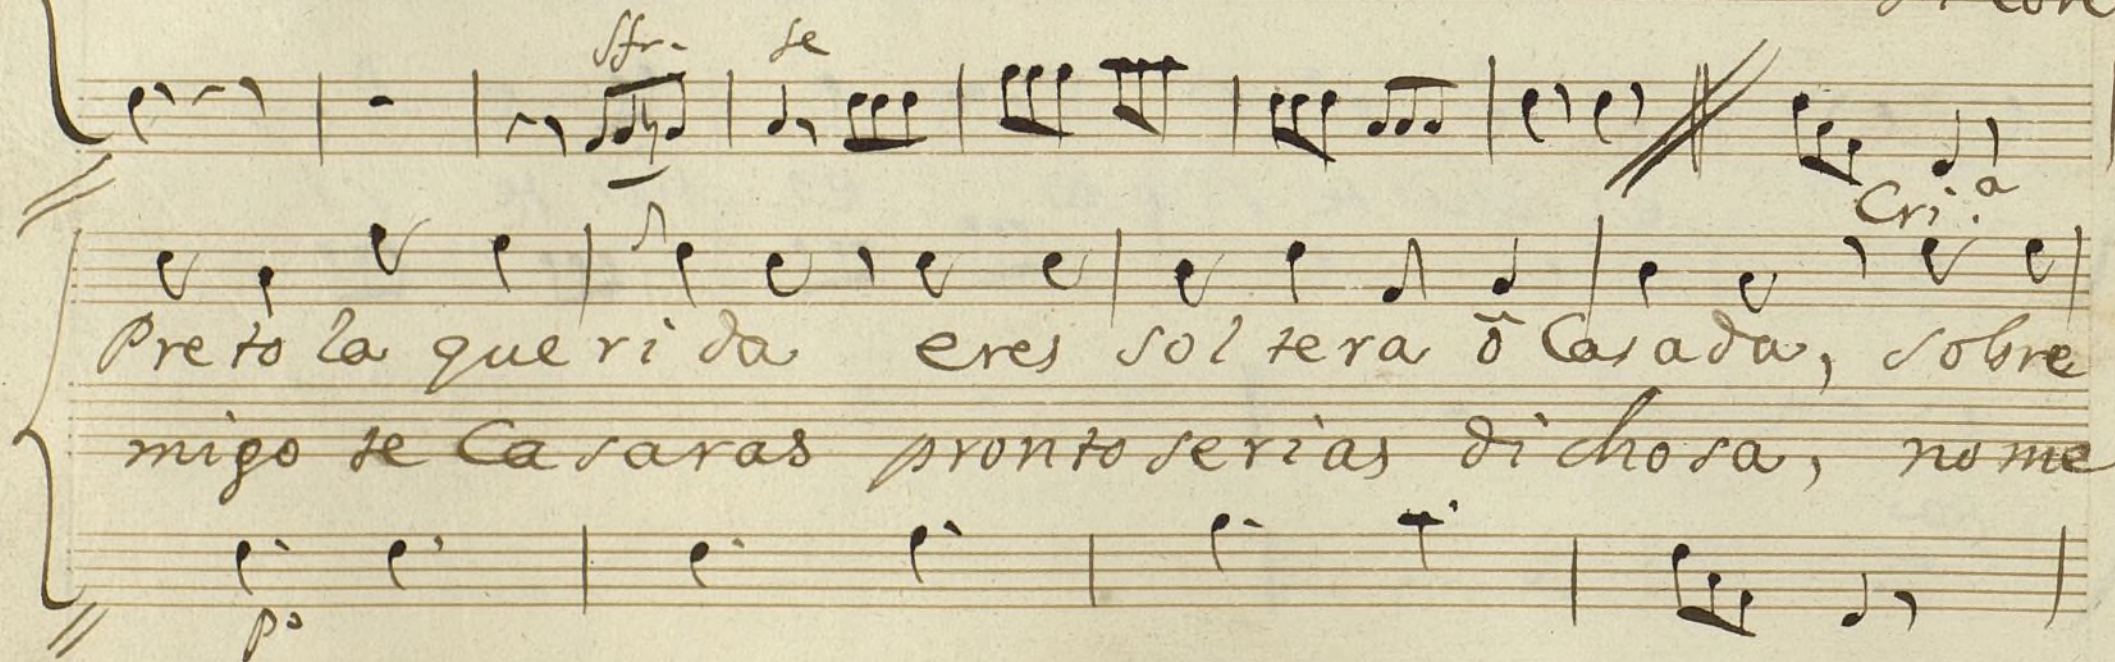 sfr. fe
Cri.a
Pretola querida eres soltera ô Casada, sobre
migo te Casaras pronto serias dichosa, no me
po